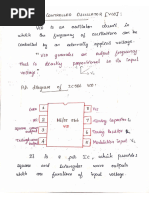 CONTROLLED OSCILLATOR [VCO]:
VCO is an oscillator circuit in
which the frequency of oscillations can be
controlled by an externally applied voltage.
"VCO generates an output frequency
that is directly proportional to its input
voltage".
Pin diagram of IC 566 VCO:
8
7
6
5
Timing Capacitor CT
Timing Resistor RT
Modulation input VC
NE/SE 566
VCO
It is 8 pin IC, which provides
square and triangular wave outputs
which are functions of input voltage.